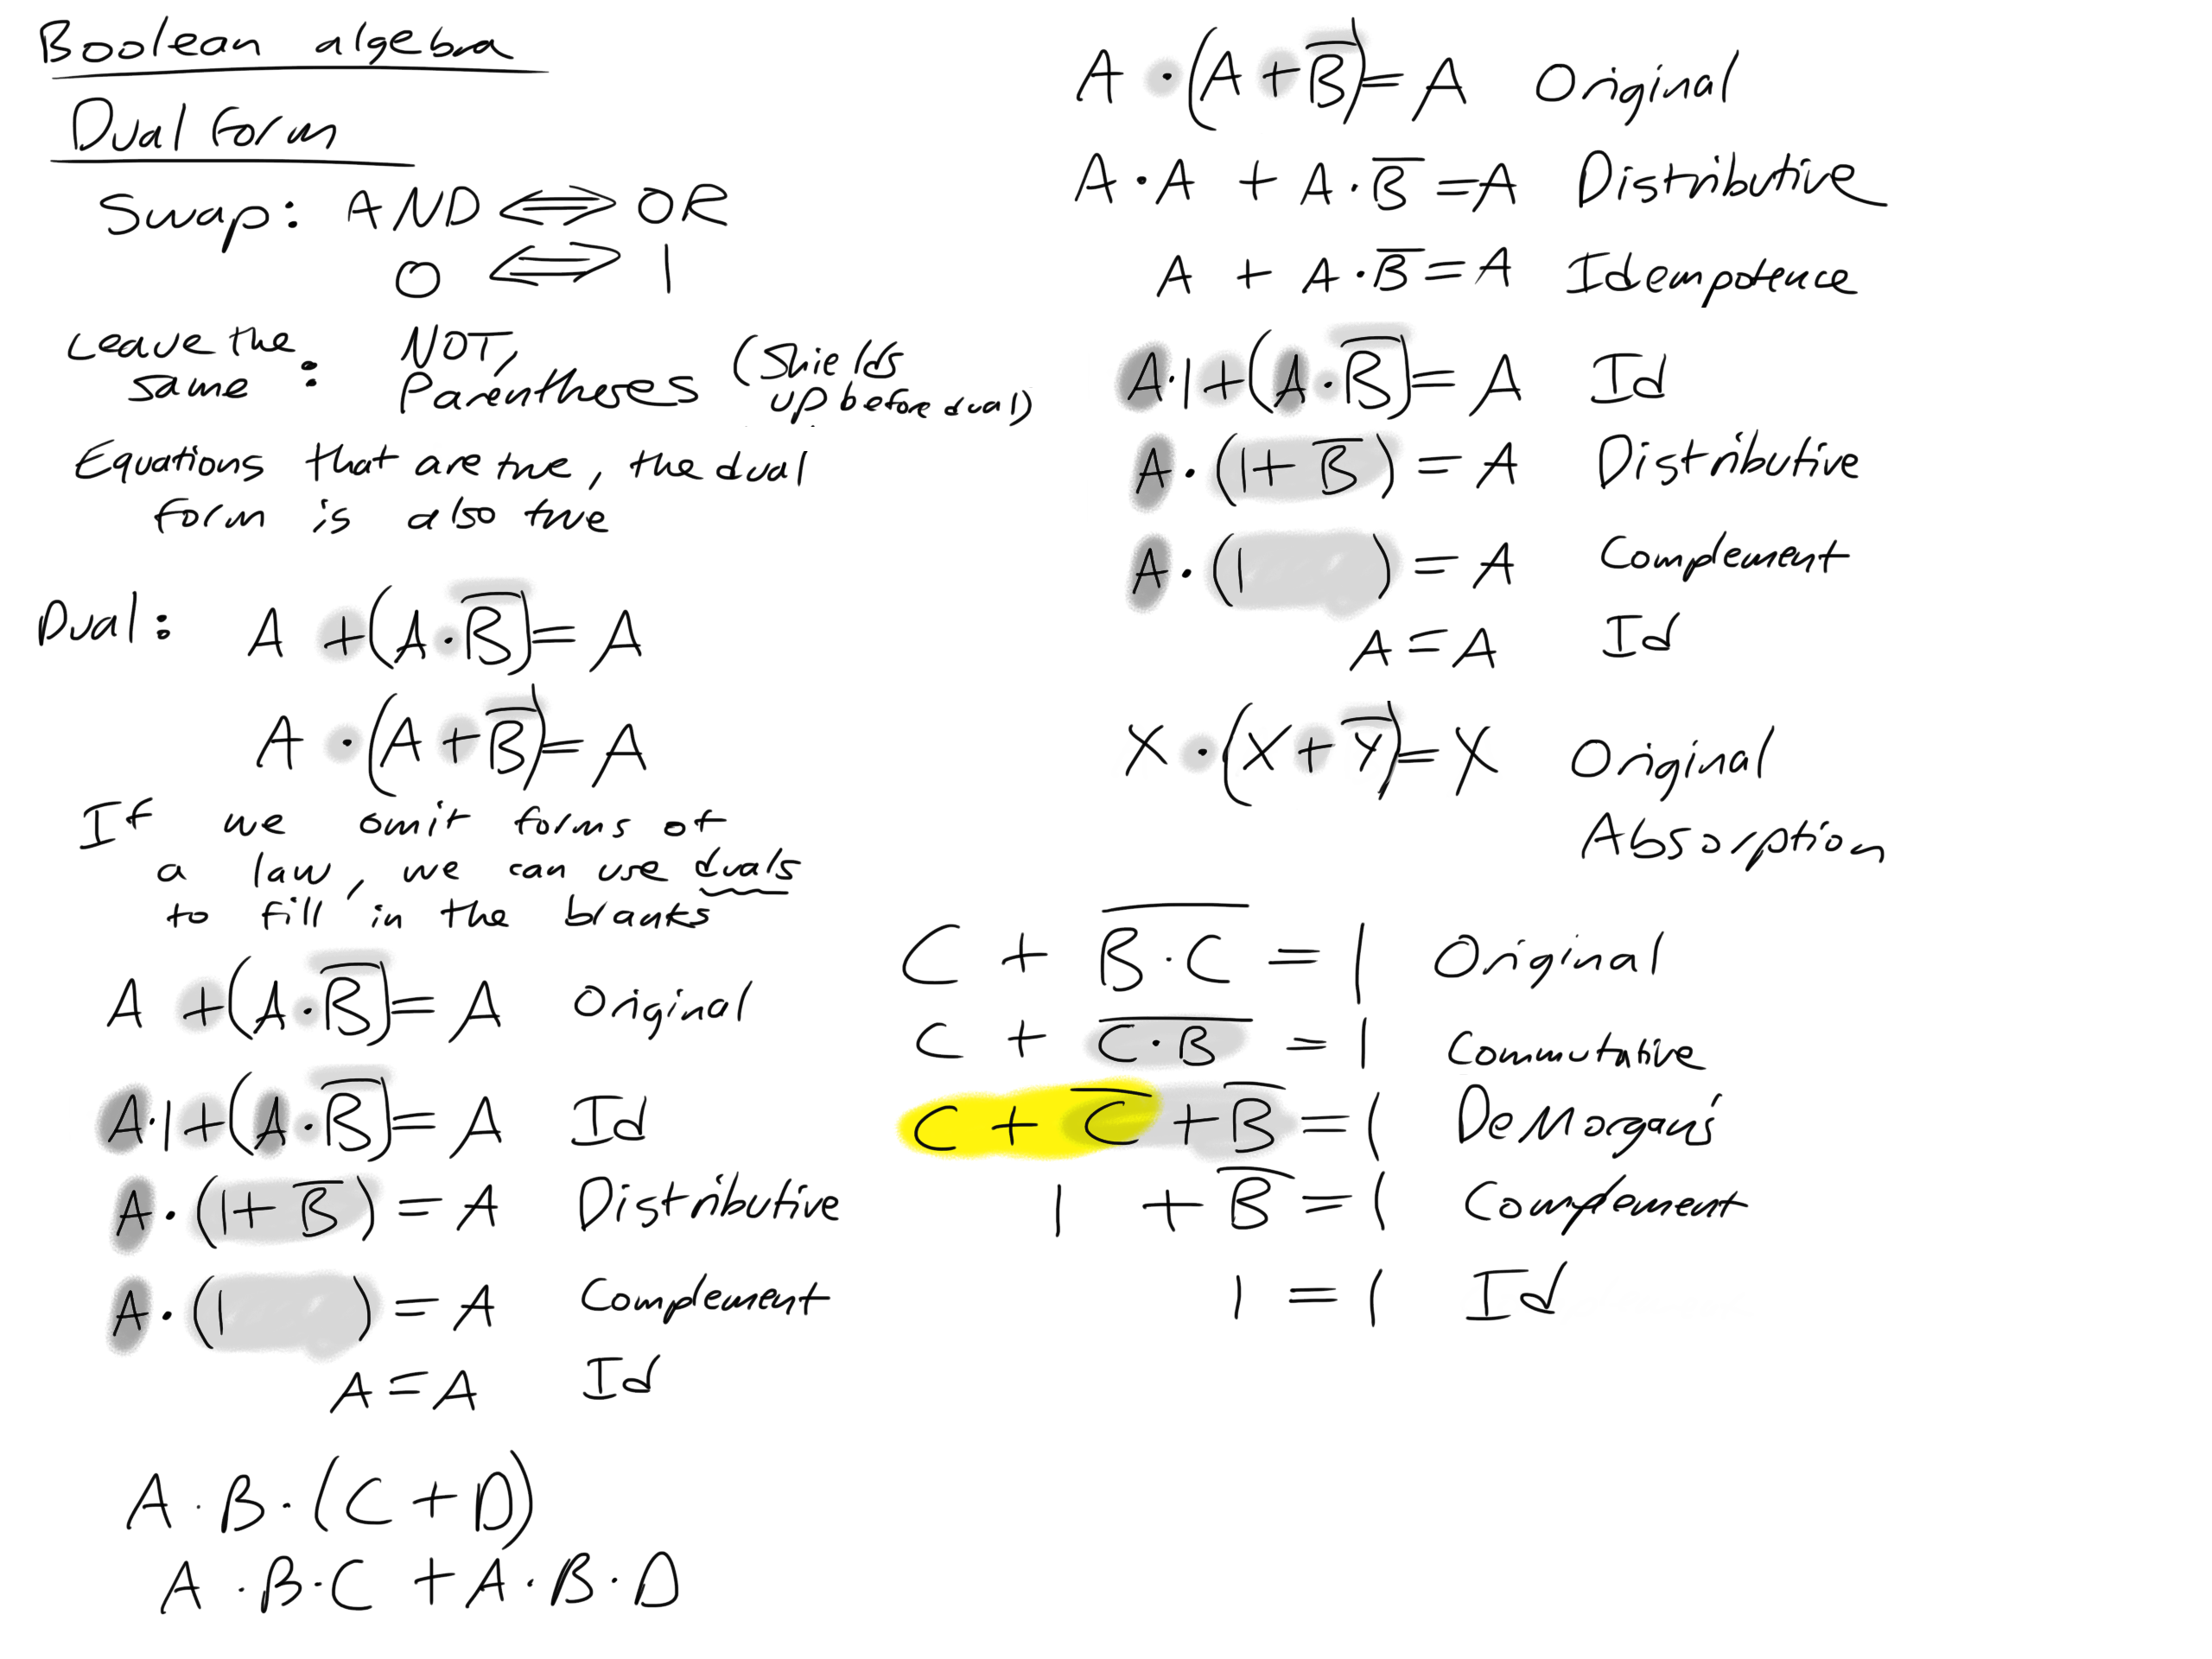 Boolean algebra
Dual form
Swap: AND ⟺ OR
0 ⟺ 1
Leave the same: NOT, Parentheses (Shields up before dual)
Equations that are true, the dual
form is also true
Dual: A + (A · B̅) = A
A · (A + B̅) = A
If we omit forms of
a law, we can use duals
to fill in the blanks
A + (A · B̅) = A Original
A · 1 + (A · B̅) = A Id
A · (1 + B̅) = A Distributive
A · (1 ) = A Complement
A = A Id
A · B · (C + D)
A · B · C + A · B · D
A · (A + B̅) = A Original
A · A + A · B̅ = A Distributive
A + A · B̅ = A Idempotence
A · 1 + (A · B̅) = A Id
A · (1 + B̅) = A Distributive
A · (1 ) = A Complement
A = A Id
X · (X + Y̅) = X Original
Absorption
C + B̅ ̅·̅ ̅C̅ = 1 Original
C + C̅ ̅·̅ ̅B̅ = 1 Commutative
C + C̅ + B̅ = 1 DeMorgan's
1 + B̅ = 1 Complement
1 = 1 Id